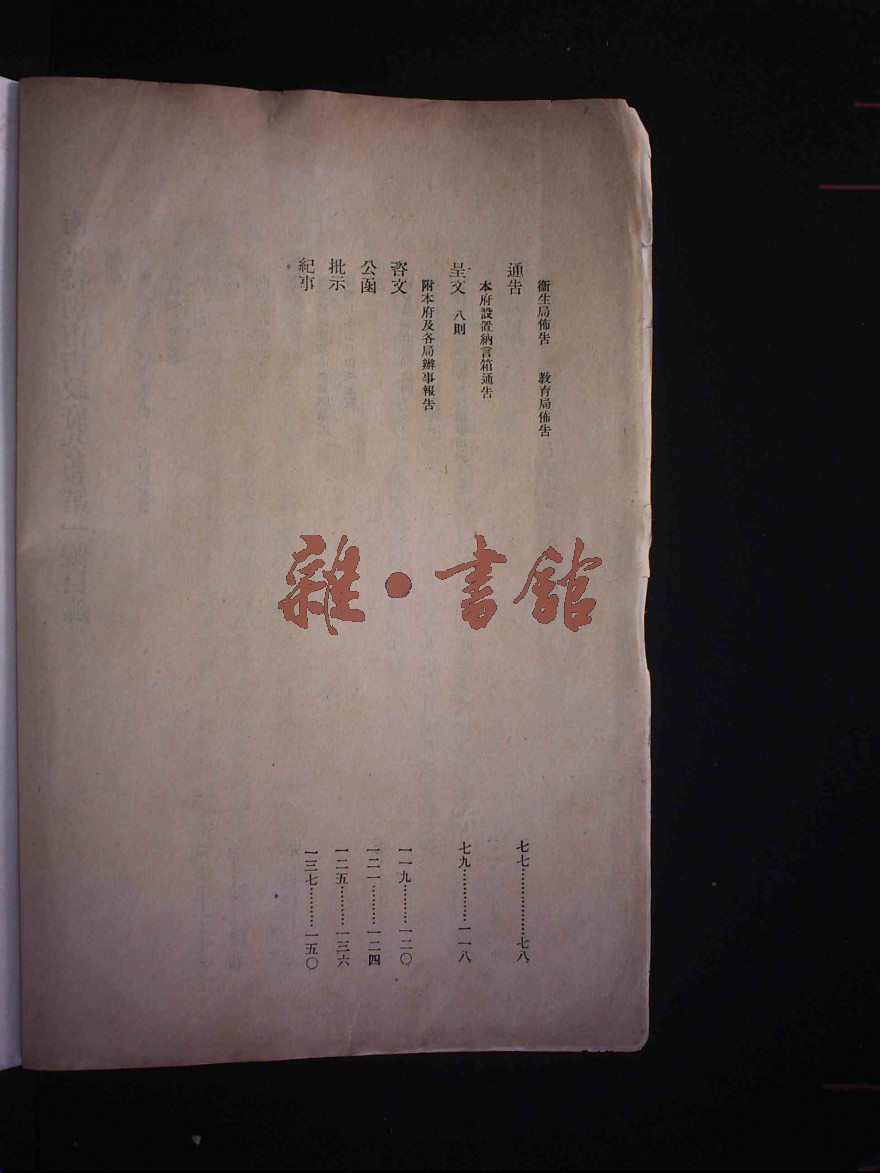 衞生局佈告　教育局佈告
通告　七七………………七八
本府設置納言箱通告
呈文　八則　七九…………一一八
附本府及各局辦事報告
咨文　一一九………一二〇
公函　一二一………一二四
批示　一二五………一三六
紀事　一三七………一五〇
雜·書館